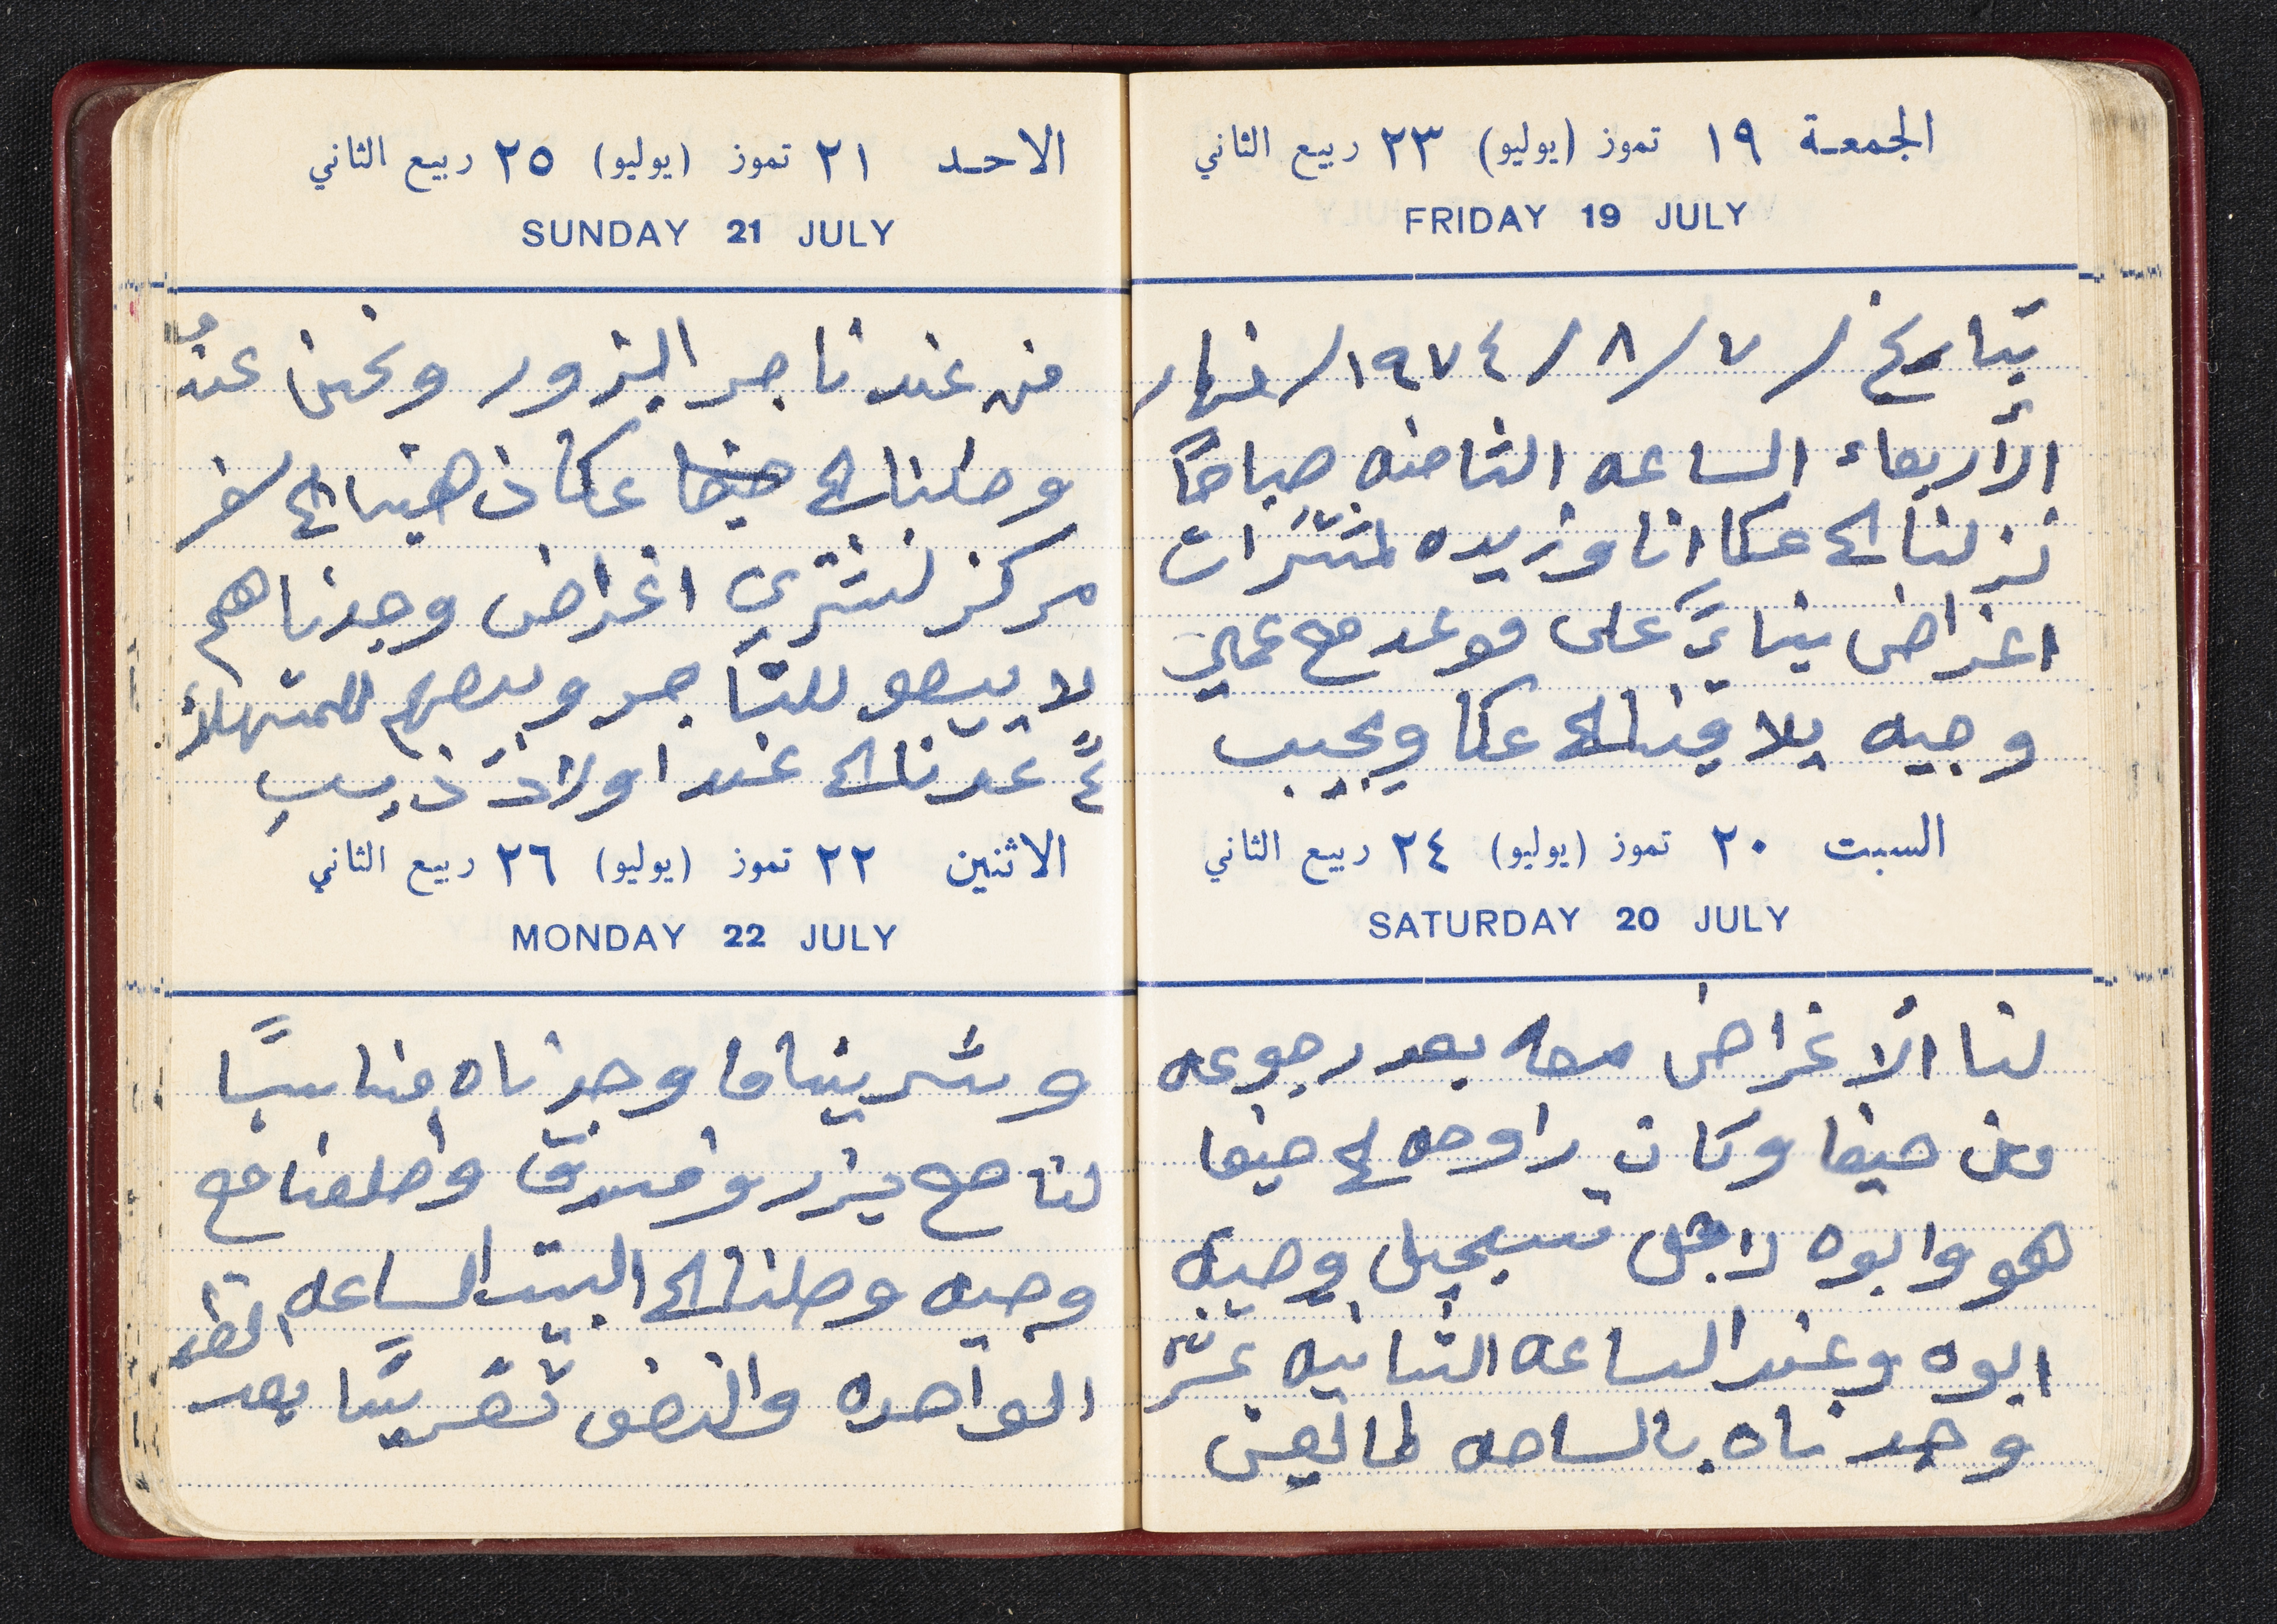 الجمعة ١٩ تموز (يوليو) ٢٣ ربيع الثاني
FRIDAY 19 JULY
بتاريخ /٧/٨/١٩٧٤/ نهار
الأربعاء الساعه الثامنه صباحاً
نزلنا الى عكا انا وزيده لمشترات
اغراض بناءً على موعد مع عملي
وجيه يلاقينا الى عكا ويجيب
السبت ٢٠ تموز (يوليو) ٢٤ ربيع الثاني
SATURDAY 20 JULY
لنا الأغراض معه بعد رجوعه
من حيفا وكان راوحه لحيفا
هو وابوه لاجل تسجيل وصية
ابوه وعند الساعه الثانيه عشر
وجدناه بالساحه لما
الاحد ٢١ تموز (يوليو) ٢٥ ربيع الثاني
SUNDAY 21 JULY
من عند تاجر البزور ونحن عنده
وصلنا الى حيفا عكا ذهبنا الى سفر
مركز لنشتري اغراض وجدناهم
لا يبيعو للتاجر وبيعهم للمتهلا
ءً عدنا الى عند اولاد ذيب
الاثنين ٢٢ تموز (يوليو) ٢٦ ربيع الثاني
MONDAY 22 JULY
وشرينا ما وجدناه مناسباً
لنا مع بزر وفستق وطلعنا مع
وجيه وصلنا الى البيت الساعه
الواحده والنصف تقريباً بعد الظهر